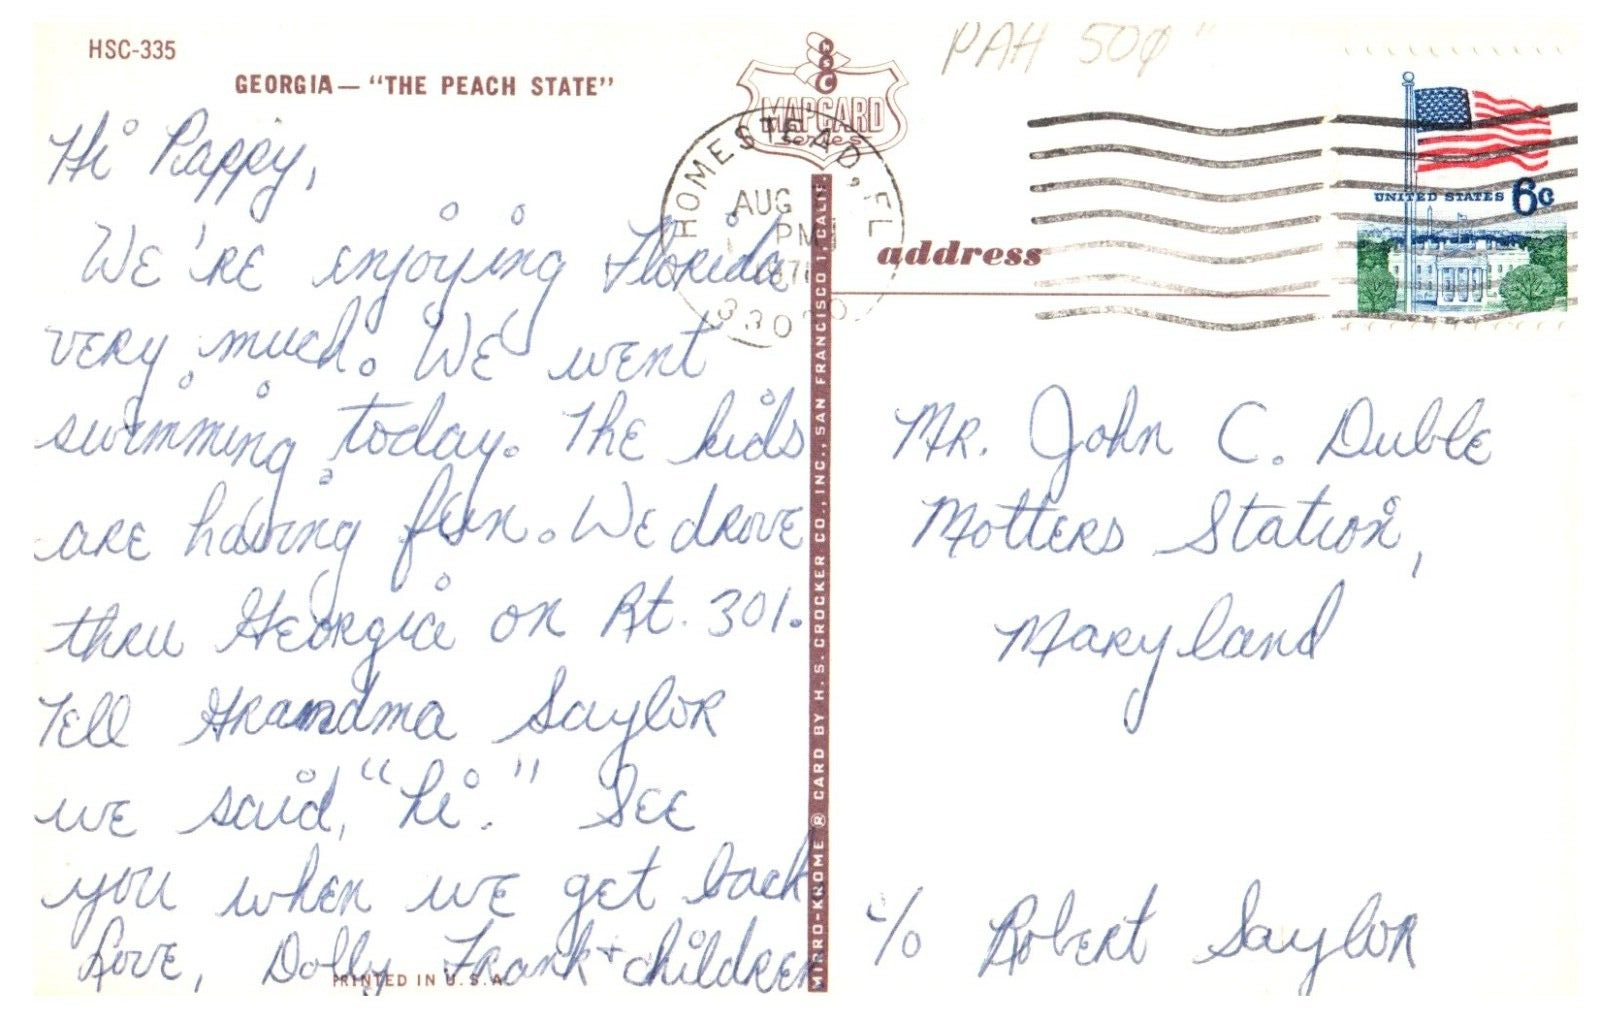 HSC-335
GEORGIA — "THE PEACH STATE"
Hi Pappy,
We're enjoying Florida
very much. We went
swimming today. The kids
are having fun. We drove
thru Georgia on Rt. 301.
Tell Grandma Saylor
we said, "hi." See
you when we get back
Love, Dolly Frank + children
PRINTED IN U.S.A.
HSC
MAPCARD
Series
HOMESTEAD, FL
AUG
PM
MIRRO-KROME® CARD BY H. S. CROCKER CO., INC., SAN FRANCISCO 1, CALIF.
PAH 50¢
UNITED STATES 6c
address
Mr. John C. Duble
Motters Station,
Maryland
c/o Robert Saylor